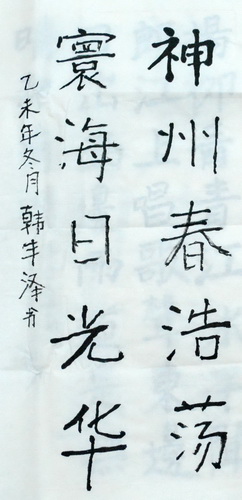 神州春浩荡
寰海日光华
乙未年冬月韩丰泽书